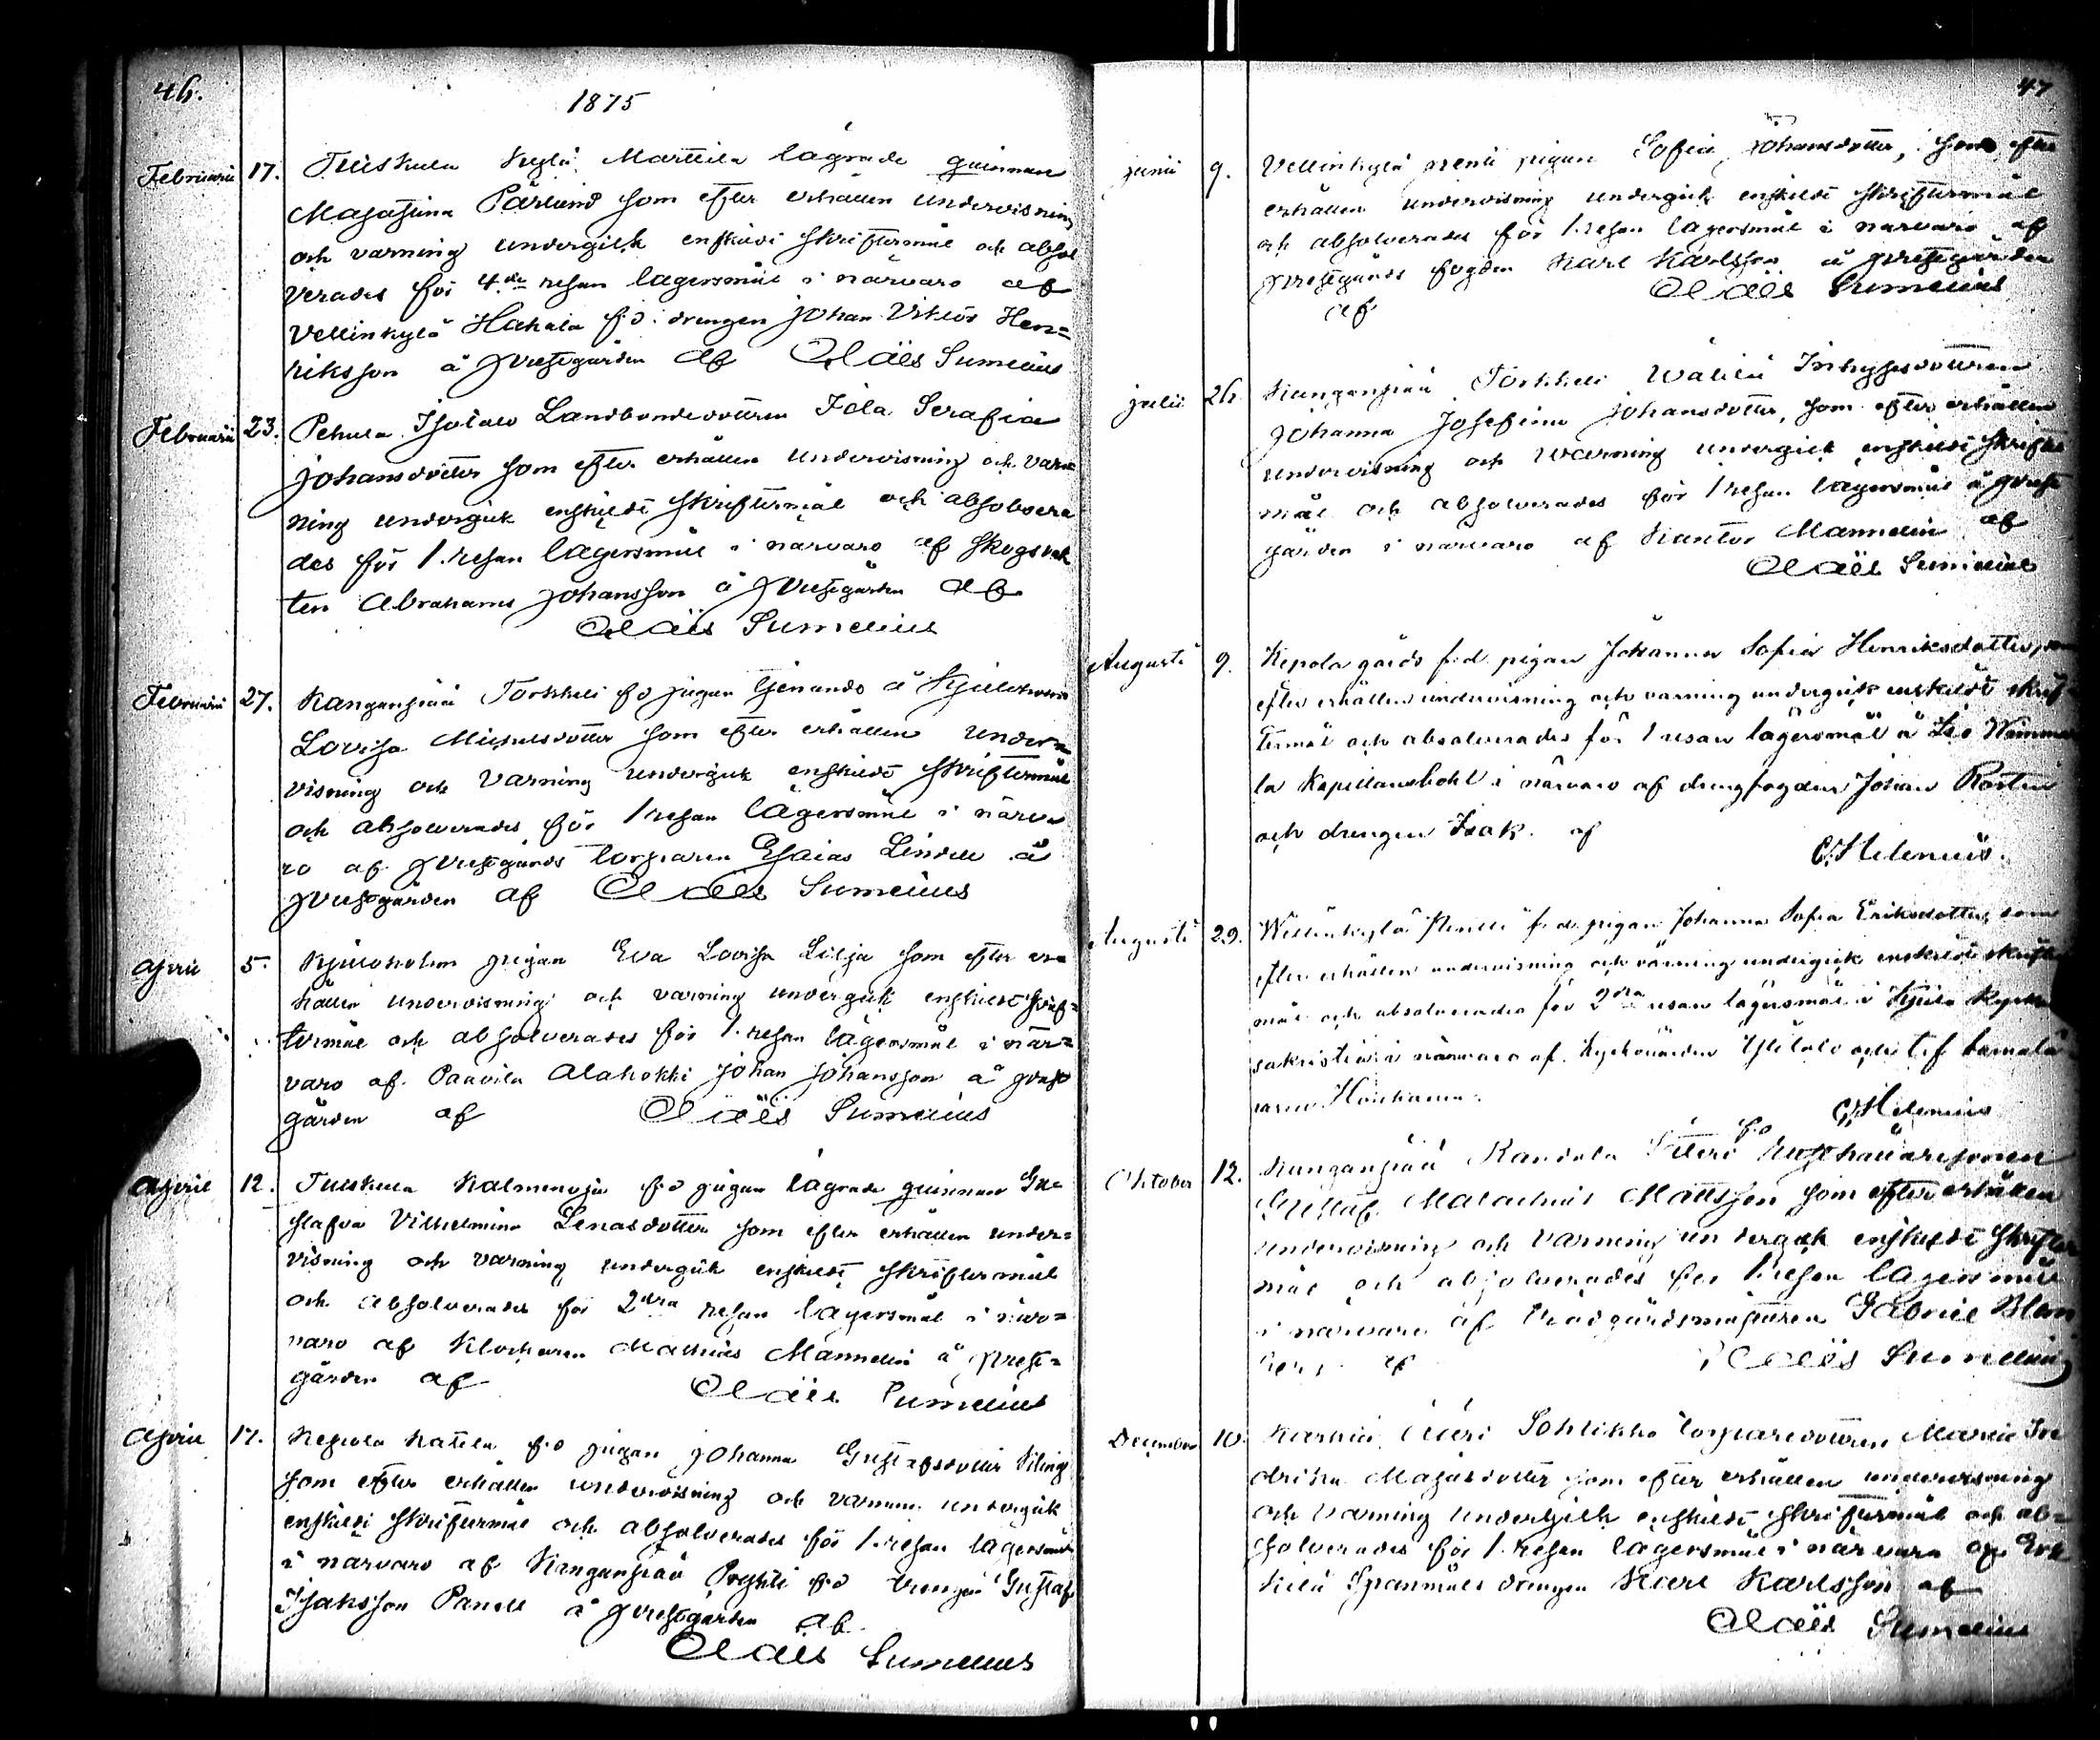 46.
1875
Februarii 17. Tuiskula Kylä Marttila lägrade quinnan
Majastina Pärlund som efter erhållen undervisning
och varning undergick enskildt skriftermål och absol
verades för 4de resan lägersmål i närvaro af
Vellinkylä Hakala f.d. drengen Johan Viktor Hen=
riksson å Prestgården af Claës Sumelius
Februarii 23. Pehula Isotalo Landbondedottren Ida Serafia
Johansdotter som efter erhållen undervisning och var
ning undergick enskildt skriftermål och absolvera
des för 1. resan lägersmål i närvaro af Skogsvak
ten Abraham Johansson å Prestgården af
Claës Sumelius
Februarii 27. Kanganpää Torkkeli f.d. pigan tjenande å Kjuloholm
Lovisa Michelsdotter som efter erhållen under=
visning och varning undergick enskildt skriftermål
och absolverades för 1 resan lägersmål i närva
ro af Prestgårds torparen Esaias Lindell å
Prestgården af Claës Sumelius
April 5. Kjuloholm pigan Eva Lovisa Lilja som efter er=
hållen undervisning och varning undergick enskildt skrif=
termål och absolverades för 1. resan lägersmål i när=
varo af Paavila Alahokki Johan Johansson å prest
gården af Claës Sumelius
April 12. Tuiskula Kalmenoja f.d. pigan lägrade quinnan Gu
stafva Vilhelmina Lenasdotter som efter erhållen under=
visning och varning undergick enskildt skriftermål
och absolverades för 2dra resan lägersmål i när=
varo af Klockaren Mathias Mannelin å prest=
gården af Claës Sumelius
April 17. Kepola Kattila f.d. pigan Johanna Gustafsdotter
som efter erhållen undervisning och varning undergick
enskildt skriftermål och absolverades för 1. resan lägersmål
i närvaro af Kanganpää f.d. drengen Gustaf
Isaksson å prestgården af
Claës Sumelius
47
Junii 9. Vellinkylä pigan Sofia Johansdotter, som efter
erhållen undervisning undergick enskildt skriftermål
och absolverades för 1. resan lägersmål i närvaro af
prestgårds fogden Karl Karlsson å prestgården
af Claës Sumelius
Julii 26. Kanganpää Torkkeli Inhysesdottren
Johanna Josefina Johansdotter, som efter erhållen
undervisning och warning undergick enskildt skrifter
mål och absolverades för 1 resan lägersmål å prest
gården i närvaro af Kantor Mannelin af
Claës Sumelius
Augusti 9. Kepola gårds f.d. pigan Johanna Sofia Henriksdotter, som
efter erhållen undervisning och varning undergick enskildt skrif=
termål och absolverades för 1 resan lägersmål å Iso Wimma
la Kapellansbohl i närvaro af drengfogden Johan
och drengen Isak. af
C. Helenius.
Augusti 29. Willinkylä f.d. pigan Johanna Sofia Eriksdotter, som
efter erhållen undervisning och varning undergick enskildt skrifter
mål och absolverades för 2dra resan lägersmål i Kjulo Kyrkas
sakristia i närvaro af Kyrkovärden Ylitalo och
C. Helenius
Oktober 12. Kanganpää f.d.
Gustaf Malachias Mattsson som efter erhållen
undervisning och varning undergick enskildt skrifter
mål och absolverades för 1. resan lägersmål
i närvaro af Trädgårdsmästaren Gabriel
af Claës Sumelius
December 10. Sohlikko torparedottren Maria
Majasdotter som efter erhållen undervisning
och varning undergick enskildt skriftermål och ab=
solverades för 1. resan lägersmål i närvaro af
drengen Karl Karlsson af
Claës Sumelius